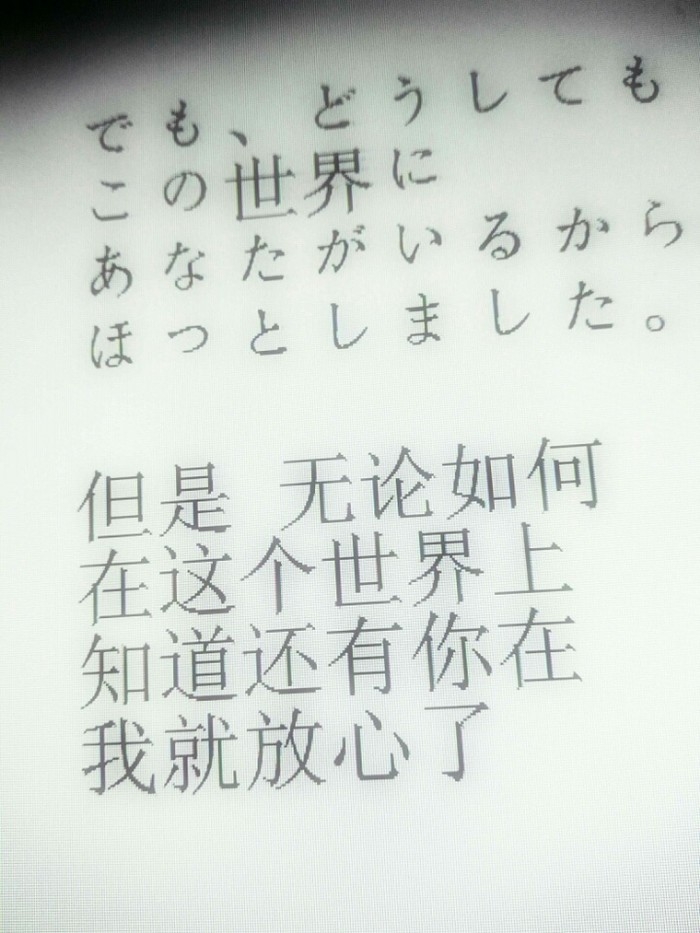 でも、どうしても
この世界に
あなたがいるから
ほっとしました。
但是 无论如何
在这个世界上
知道还有你在
我就放心了